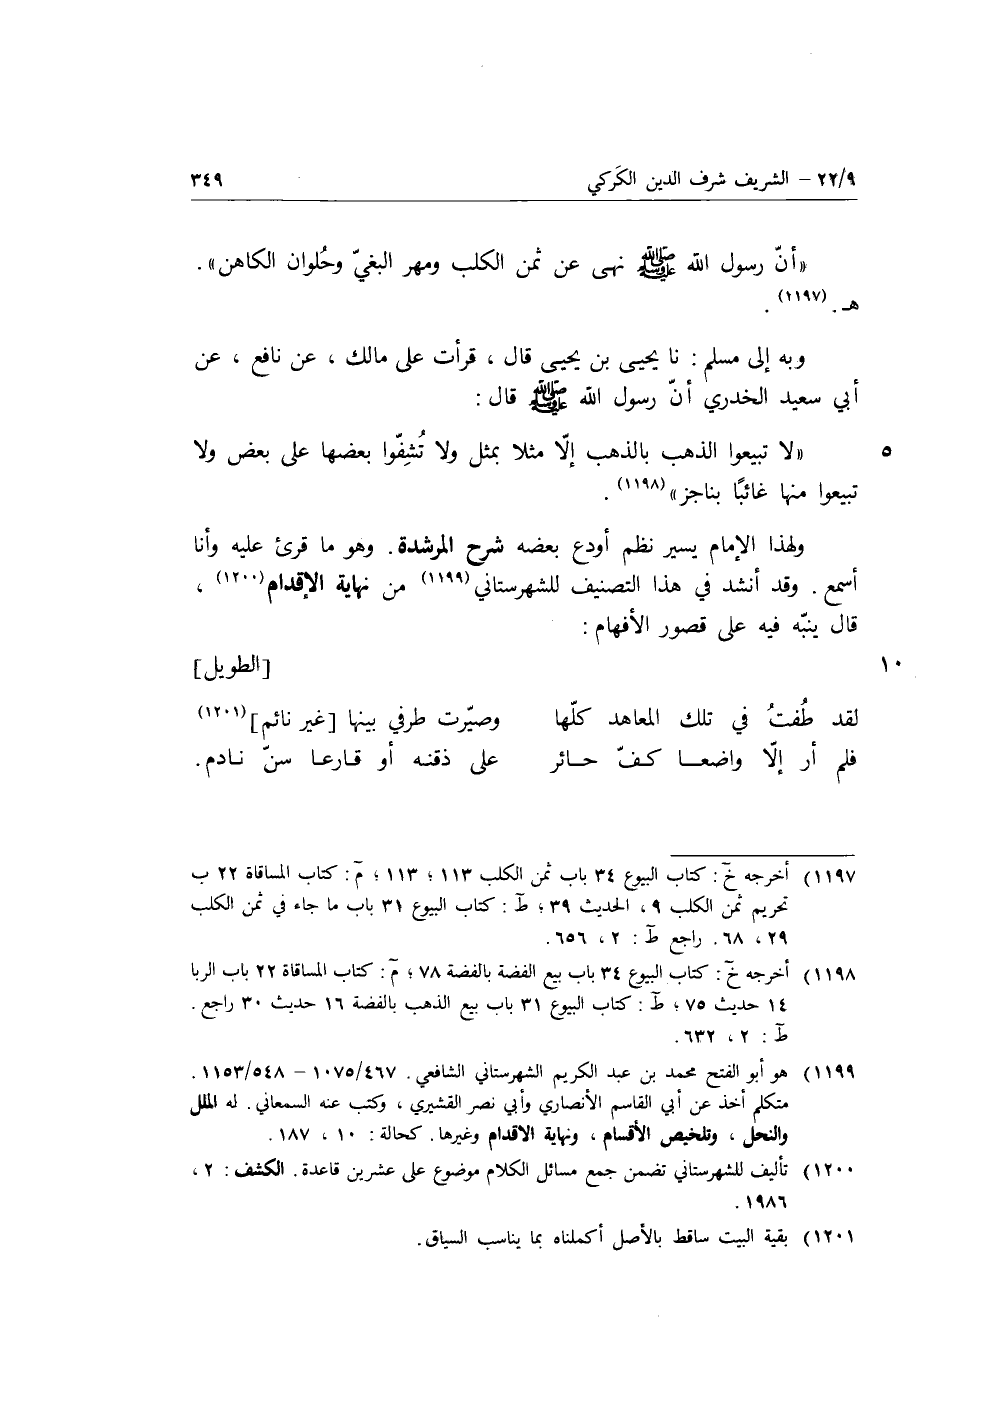 ٢٢/٩ – الشريف شرف الدين الكَركي ٣٤٩
«أنّ رسول الله ﷺ نهى عن ثمن الكلب ومهر البغيّ وحُلوان الكاهن».
هـ. (١١٩٧).
وبه إلى مسلم : نا يحيى بن يحيى قال ، قرأت على مالك ، عن نافع ، عن
أبي سعيد الخدري أنّ رسول الله ﷺ قال :
«لا تبيعوا الذهب بالذهب إلّا مثلا بمثل ولا تُشِفّوا بعضها على بعض ولا ٥
تبيعوا منها غائبًا بناجز» (١١٩٨) .
ولهذا الإمام يسير نظم أودع بعضه شرح المرشدة. وهو ما قرئ عليه وأنا
أسمع . وقد أنشد في هذا التصنيف للشهرستاني (١١٩٩) من نهاية الإقدام (١٢٠٠) ،
قال ينبّه فيه على قصور الأفهام :
[الطويل] ١٠
لقد طُفتُ في تلك المعاهد كلّها وصيّرت طرفي بينها [غير نائم] (١٢٠١)
فلم أر إلّا واضعـا كـفّ حـائر على ذقنـه أو قـارعـا سنّ نـادم.
١١٩٧) أخرجه خٓ : كتاب البيوع ٣٤ باب ثمن الكلب ١١٣ ؛ ١١٣ ؛ مٓ : كتاب المساقاة ٢٢ ب
تحريم ثمن الكلب ٩ ، الحديث ٣٩ ؛ طٓ : كتاب البيوع ٣١ باب ما جاء في ثمن الكلب
٢٩ ، ٦٨. راجع طٓ : ٢ ، ٦٥٦.
١١٩٨) أخرجه خٓ : كتاب البيوع ٣٤ باب بيع الفضة بالفضة ٧٨ ؛ مٓ : كتاب المساقاة ٢٢ باب الربا
١٤ حديث ٧٥ ؛ طٓ : كتاب البيوع ٣١ باب بيع الذهب بالفضة ١٦ حديث ٣٠ راجع .
طٓ : ٢ ، ٦٣٢.
١١٩٩) هو أبو الفتح محمد بن عبد الكريم الشهرستاني الشافعي. ١٠٧٥/٤٦٧ – ١١٥٣/٥٤٨ .
متكلم أخذ عن أبي القاسم الأنصاري وأبي نصر القشيري ، وكتب عنه السمعاني. له الملل
والنحل ، وتلخيص الأقسام ، ونهاية الاقدام وغيرها. كحالة : ١٠ ، ١٨٧.
١٢٠٠) تأليف للشهرستاني تضمن جمع مسائل الكلام موضوع على عشرين قاعدة. الكشف : ٢ ،
١٩٨٦ .
١٢٠١) بقية البيت ساقط بالأصل أكملناه بما يناسب السياق.